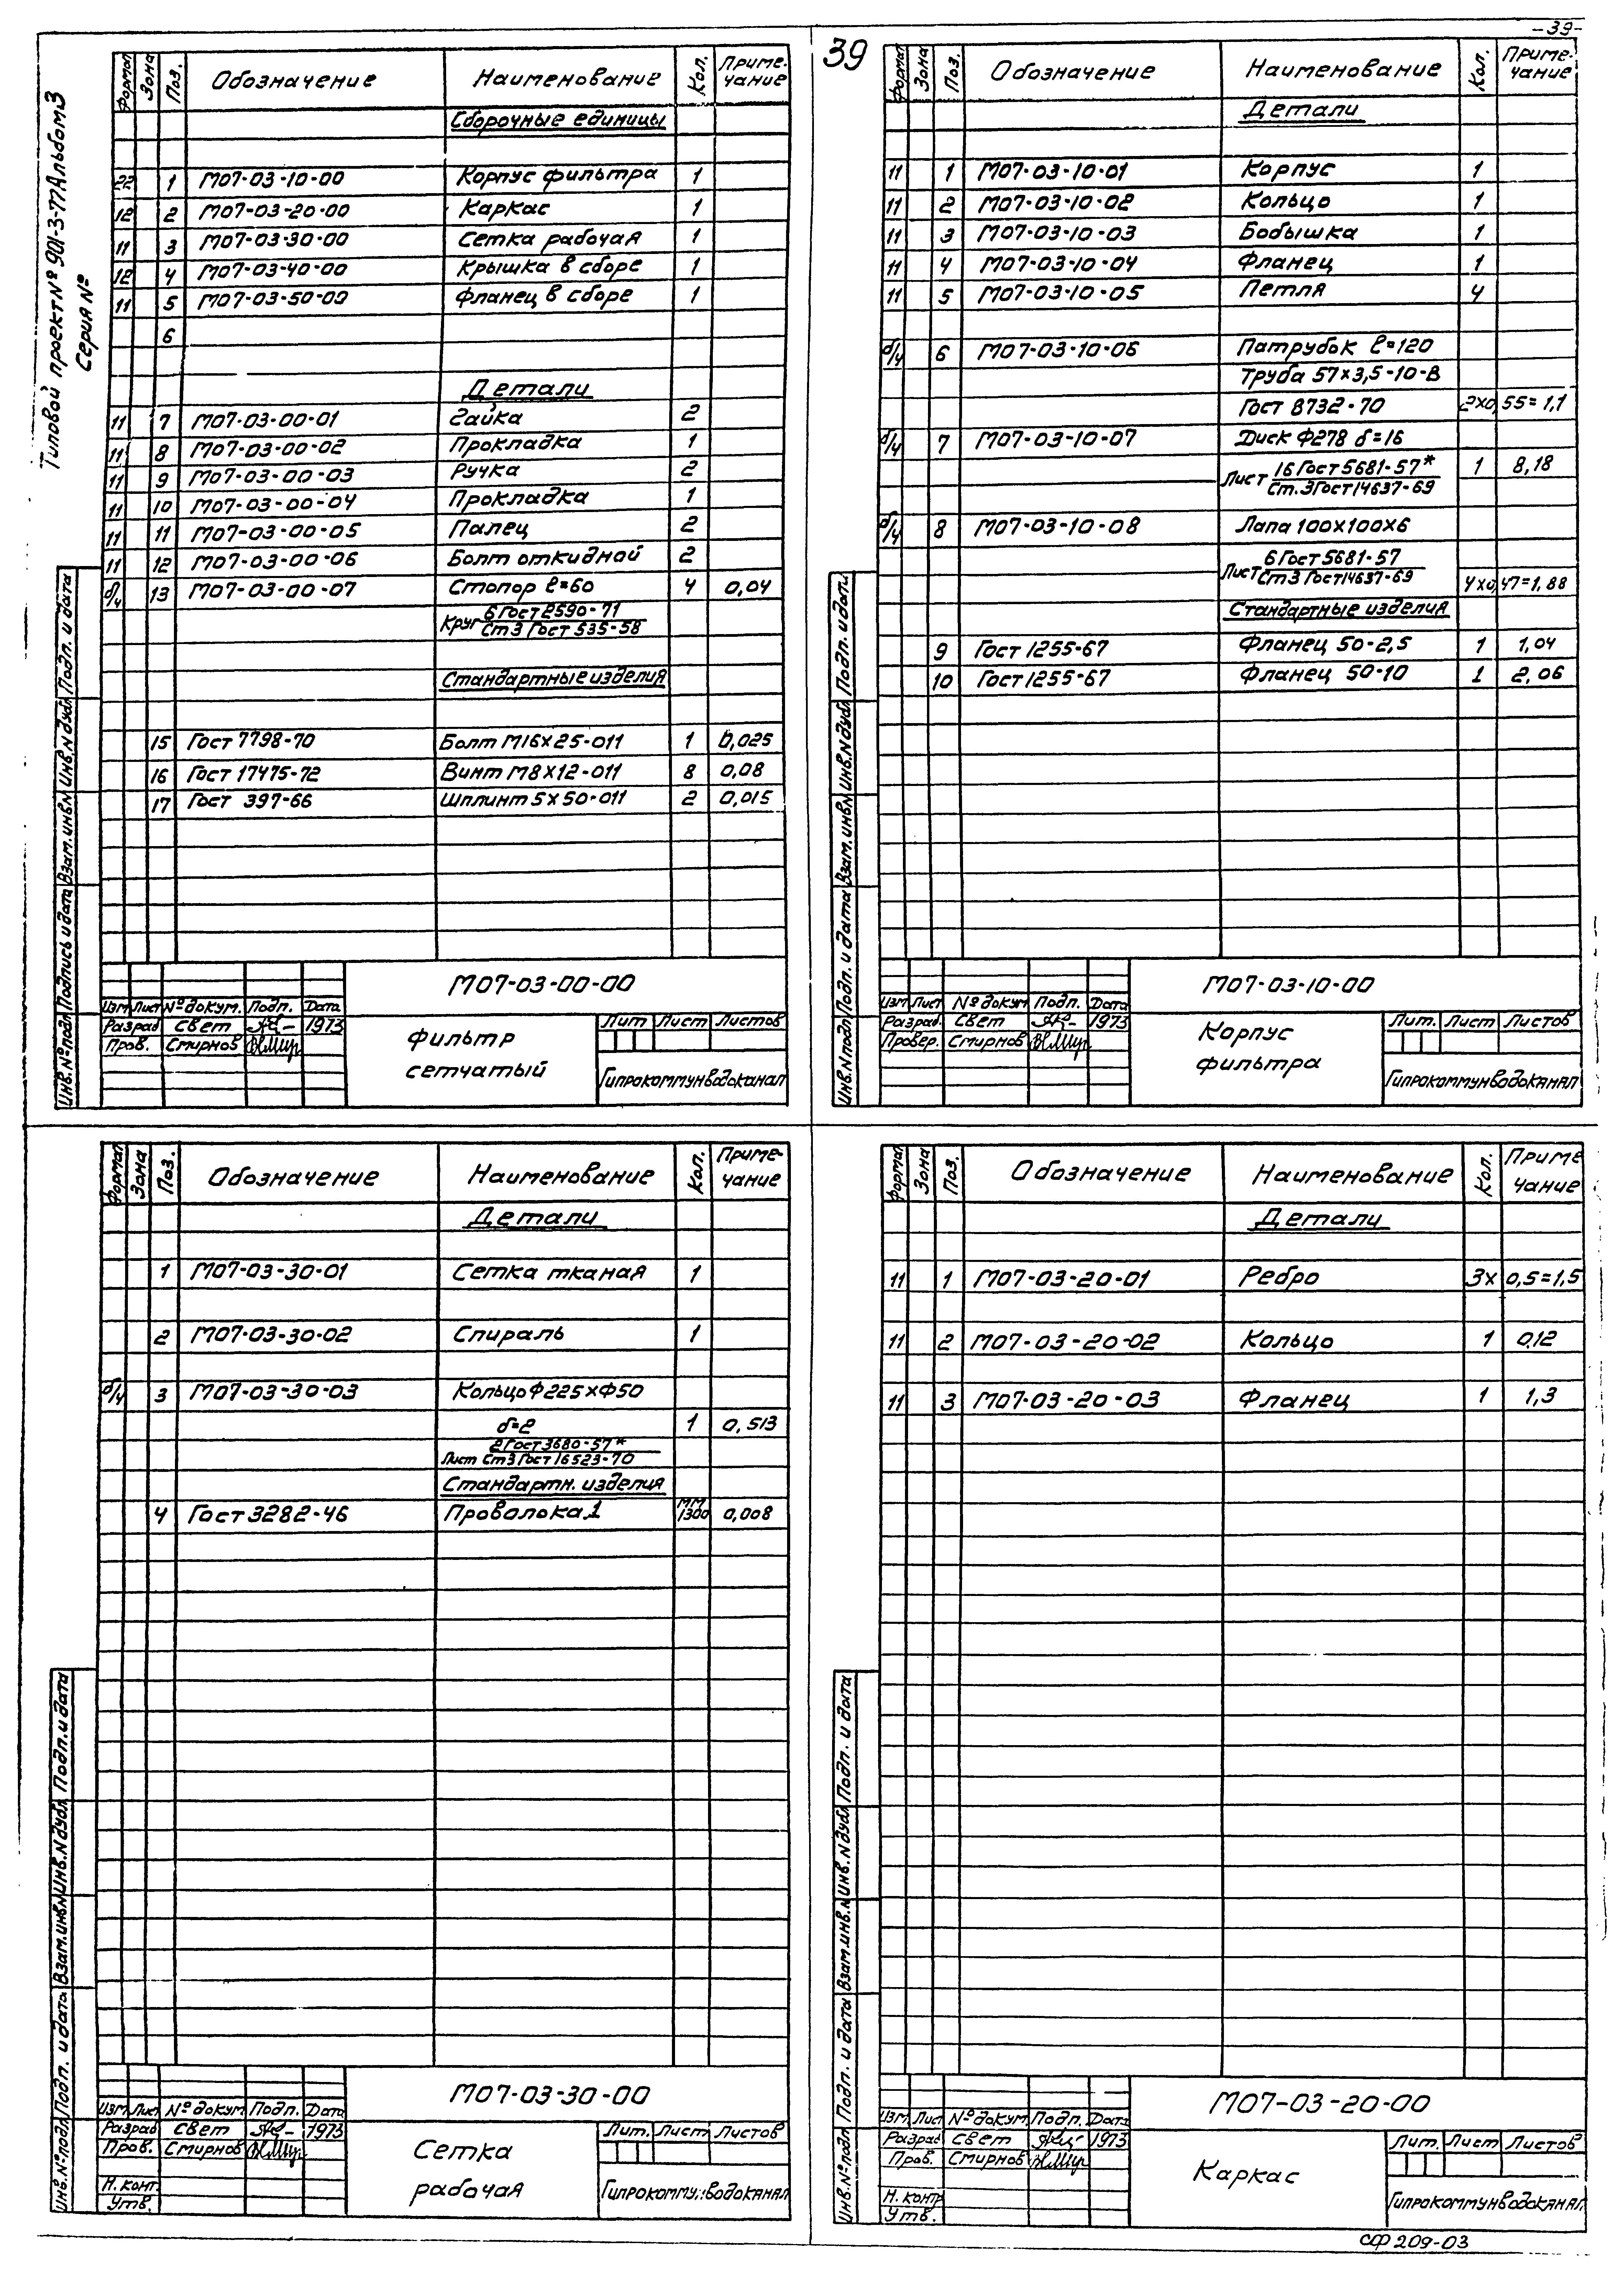 -39-
39
Типовой проект № 901-3-77 Альбом 3
Серия №
Формат Зона Поз. Обозначение Наименование Кол. Приме-
чание
Сборочные единицы
22 1 М07-03-10-00 Корпус фильтра 1
12 2 М07-03-20-00 Каркас 1
11 3 М07-03-30-00 Сетка рабочая 1
12 4 М07-03-40-00 Крышка в сборе 1
11 5 М07-03-50-00 Фланец в сборе 1
6
Детали
11 7 М07-03-00-01 Гайка 2
11 8 М07-03-00-02 Прокладка 1
11 9 М07-03-00-03 Ручка 2
11 10 М07-03-00-04 Прокладка 1
11 11 М07-03-00-05 Палец 2
11 12 М07-03-00-06 Болт откидной 2
б/ч 13 М07-03-00-07 Стопор ℓ=60 4 0,04
Круг 6 Гост 2590-71
Ст3 Гост 535-58
Стандартные изделия
15 Гост 7798-70 Болт М16×25-011 1 0,025
16 Гост 17475-72 Винт М8×12-011 8 0,08
17 Гост 397-66 Шплинт 5×50-011 2 0,015
Инв.№ подл Подпись и дата Взам.инв.№ Инв.№ дубл Подп. и дата
М07-03-00-00
Изм Лист № докум. Подп. Дата
Разраб Свет 1973
Пров. Смирнов
Фильтр
сетчатый
Лит Лист Листов
Гипрокоммунводоканал
Формат Зона Поз. Обозначение Наименование Кол. Приме-
чание
Детали
11 1 М07-03-10-01 Корпус 1
11 2 М07-03-10-02 Кольцо 1
11 3 М07-03-10-03 Бобышка 1
11 4 М07-03-10-04 Фланец 1
11 5 М07-03-10-05 Петля 4
б/ч 6 М07-03-10-06 Патрубок ℓ=120
Труба 57×3,5-10-В
Гост 8732-70 2×0,55=1,1
б/ч 7 М07-03-10-07 Диск Ф278 δ=16
Лист 16 Гост 5681-57* 1 8,18
Ст.3 Гост 14637-69
б/ч 8 М07-03-10-08 Лапа 100×100×6
Лист 6 Гост 5681-57
Ст3 Гост 14637-69 4×0,47=1,88
Стандартные изделия
9 Гост 1255-67 Фланец 50-2,5 1 1,04
10 Гост 1255-67 Фланец 50-10 1 2,06
Инв.№ подл Подп. и дата Взам.инв.№ Инв.№ дубл Подп. и дата
М07-03-10-00
Изм Лист № докум Подп. Дата
Разраб. Свет 1973
Провер. Смирнов
Корпус
фильтра
Лит. Лист Листов
Гипрокоммунводоканал
Формат Зона Поз. Обозначение Наименование Кол. Приме-
чание
Детали
1 М07-03-30-01 Сетка тканая 1
2 М07-03-30-02 Спираль 1
б/ч 3 М07-03-30-03 Кольцо Ф225×Ф50
δ=2 1 0,513
2 Гост 3680-57*
Лист Ст3 Гост 16523-70
Стандартн. изделия
4 Гост 3282-46 Проволока 1 мм 1300 0,008
Инв.№ подл Подп. и дата Взам.инв.№ Инв.№ дубл Подп. и дата
М07-03-30-00
Изм Лист № докум Подп. Дата
Разраб Свет 1973
Пров. Смирнов
Н. конт.
Утв.
Сетка
рабочая
Лит. Лист Листов
Гипрокоммунводоканал
Формат Зона Поз. Обозначение Наименование Кол. Приме
чание
Детали
11 1 М07-03-20-01 Ребро 3× 0,5=1,5
11 2 М07-03-20-02 Кольцо 1 0,12
11 3 М07-03-20-03 Фланец 1 1,3
Инв.№ подл Подп. и дата Взам.инв.№ Инв.№ дубл Подп. и дата
М07-03-20-00
Изм Лист № докум Подп. Дата
Разраб Свет 1973
Пров. Смирнов
Н. контр
Утв.
Каркас
Лит. Лист Листов
Гипрокоммунводоканал
сф 209-03